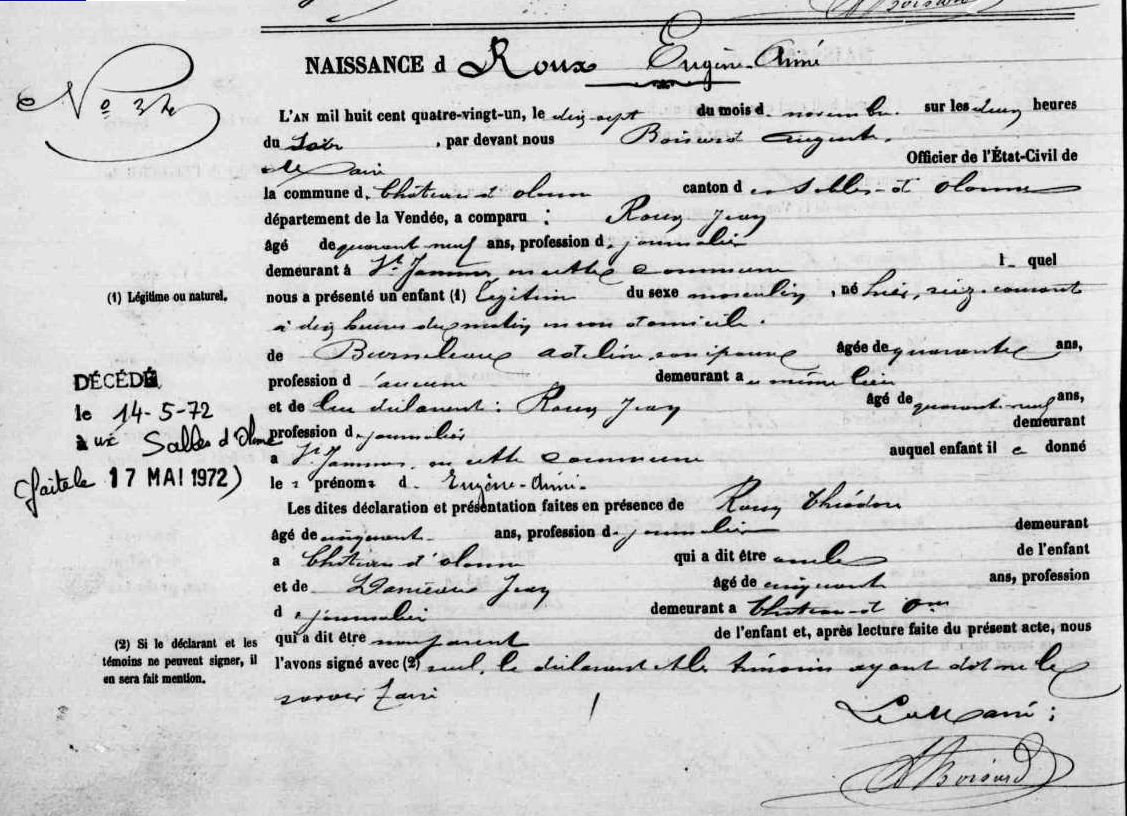 NAISSANCE d Roux Eugène-Aimé
L'AN mil huit cent quatre-vingt-un, le dix-sept du mois d novembre sur les deux heures
du Soir, par devant nous Boisard Auguste.
Maire Officier de l'État-Civil de
la commune d. Château d'olonne canton des Sables-d'olonne
département de la Vendée, a comparu : Roux Jean
âgé de quarante neuf ans, profession d. journalier
demeurant à St. Jammes en cette commune l quel
(1) Légitime ou naturel.
nous a présenté un enfant (1) légitime du sexe masculin, né hier, seize courant
à dix heures du matin en son domicile.
de adeline, son épouse âgée de quarante ans,
profession d'aucune demeurant au même lieu
et de lui déclarant : Roux Jean âgé de quarante-neuf ans,
profession d. journalier demeurant
a St. Jammes, en cette commune auquel enfant il a donné
le s prénoms d. Eugène-Aimé.
DÉCÉDÉ
le 14-5-72
aux Sables d'Olonne
(faite le 17 MAI 1972)
Les dites déclaration et présentation faites en présence de Roux Théodore
âgé de cinquante ans, profession d. journalier demeurant
a Château d'olonne qui a dit être oncle de l'enfant
et de Jean âgé de cinquante ans, profession
d. journalier demeurant a Château-d'
qui a dit être non parent de l'enfant et, après lecture faite du présent acte, nous
l'avons signé avec (2) seul, le déclarant et les témoins ayant dit ne le
savoir faire
(2) Si le déclarant et les
témoins ne peuvent signer, il
en sera fait mention.
Le Maire :
A Boisard